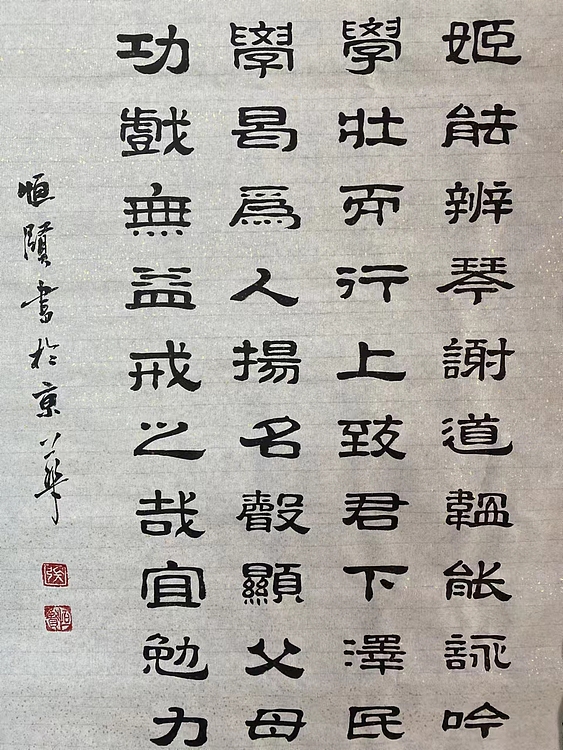 姬能辨琴謝道韞能詠吟
學壯而行上致君下澤民
學曷爲人揚名聲顯父母
功戲無益戒之哉宜勉力
恒書於京華
張